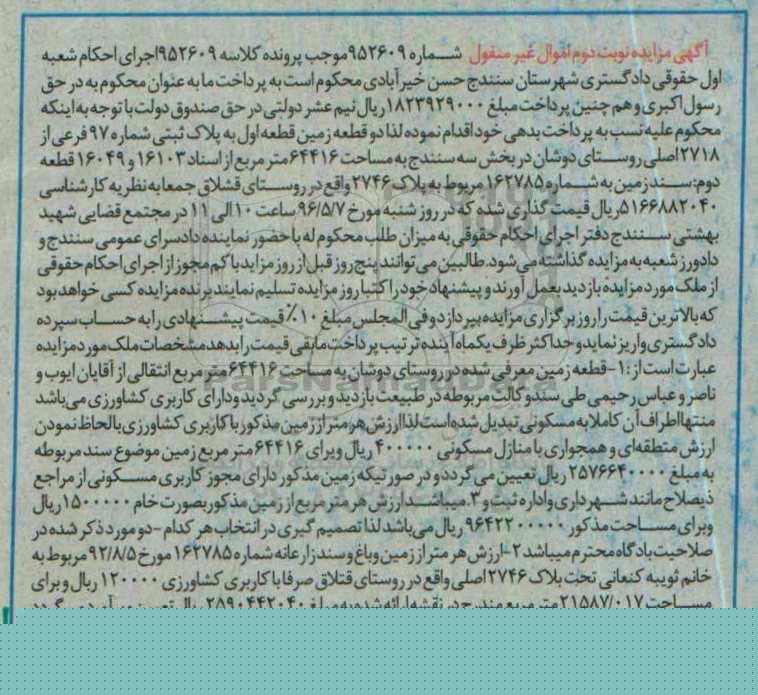 آگهی مزایده نوبت دوم اموال غیر منقول شماره ۹۵۲۶۰۹موجب پرونده کلاسه ۹۵۲۶۰۹اجرای احکام شعبه
اول حقوقی دادگستری شهرستان سنندج حسن خیرآبادی محکوم است به پرداخت ما به عنوان محکوم به در حق
رسول اکبری و هم چنین پرداخت مبلغ ۱۸۲۳۹۲۹۰۰۰ریال نیم عشر دولتی در حق صندوق دولت با توجه به اینکه
محکوم علیه نسب به پرداخت بدهی خود اقدام نموده لذا دو قطعه زمین قطعه اول به پلاک ثبتی شماره ۹۷ فرعی از
۲۷۱۸اصلی روستای دوشان در بخش سه سنندج به مساحت ۶۴۴۱۶متر مربع از اسناد ۱۶۱۰۳ و ۱۶۰۴۹ قطعه
دوم:سند زمین به شماره ۱۶۲۷۸۵مربوط به پلاک ۲۷۴۶واقع در روستای قشلاق جمعا به نظریه کارشناسی
۵۱۶۶۸۸۲۰۴۰ریال قیمت گذاری شده که در روز شنبه مورخ ۹۶/۵/۷ ساعت ۱۰الی ۱۱ در مجتمع قضایی شهید
بهشتی سنندج دفتر اجرای احکام حقوقی به میزان طلب محکوم له با حضور نماینده دادسرای عمومی سنندج و
دادورز شعبه به مزایده گذاشته می شود.طالبین می توانند پنج روز قبل از روز مزاید با کم مجوز از اجرای احکام حقوقی
از ملک مورد مزایده بازدید بعمل آورند و پیشنهاد خود را کتبا روز مزایده تسلیم نمایند برنده مزایده کسی خواهد بود
که بالاترین قیمت را روز برگزاری مزایده بپردازد و فی المجلس مبلغ ۱۰٪ قیمت پیشنهادی را به حساب سپرده
دادگستری واریز نماید و حداکثر ظرف یکماه آینده ترتیب پرداخت مابقی قیمت را بدهد مشخصات ملک مورد مزایده
عبارت است از :۱-قطعه زمین معرفی شده در روستای دوشان به مساحت ۶۴۴۱۶متر مربع انتقالی از آقایان ایوب و
ناصر و عباس رحیمی طی سند و کالت مربوطه در طبیعت بازدید و بررسی گردید و دارای کاربری کشاورزی می باشد
منتها اطراف آن کاملا به مسکونی تبدیل شده است لذا ارزش هر متر از زمین مذکور با کاربری کشاورزی با لحاظ نمودن
ارزش منطقه ای و همجواری با منازل مسکونی ۴۰۰۰۰۰ ریال و برای ۶۴۴۱۶ متر مربع زمین موضوع سند مربوطه
به مبلغ ۲۵۷۶۶۴۰۰۰۰ ریال تعیین می گردد و در صورتیکه زمین مذکور دارای مجوز کاربری مسکونی از مراجع
ذیصلاح مانند شهرداری و اداره ثبت و ۳.میباشد ارزش هر متر مربع از زمین مذکور بصورت خام ۱۵۰۰۰۰۰ ریال
و برای مساحت مذکور ۹۶۴۲۲۰۰۰۰۰ ریال می باشد لذا تصمیم گیری در انتخاب هر کدام -دو مورد ذکر شده در
صلاحیت بادگاه محترم میباشد ۲-ارزش هر متر از زمین و باغ و سند زارعانه شماره ۱۶۲۷۸۵ مورخ ۹۲/۸/۵ مربوط به
خانم ثویبه کنعانی تحت پلاک ۲۷۴۶اصلی واقع در روستای قتلاق صرفا با کاربری کشاورزی ۱۲۰۰۰۰ ریال و برای
مساحت ۲۱۵۸۷/۰۱۷ متر مربع مندرج در نقشه ارائه شده به مبلغ ۲۵۹۰۴۴۲۰۴۰ ریال تعیین
ParsNamadData